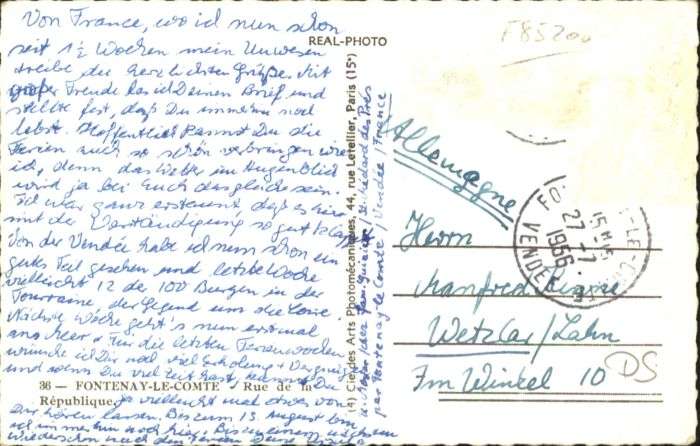 Von France, wo ich nun schon
seit 1½ Wochen mein Unwesen
treibe die herzlichsten Grüße. Mit
großer Freude las ich Deinen Brief und
stellte fest, daß Du immer noch
lebst. Hoffentlich kannst Du die
Ferien auch so schön verbringen wie
ich, denn das Wetter im Augenblick
wird ja bei Euch das gleiche sein.
Ich war ganz erstaunt, daß es hier
mit der Verständigung so gut
Von der Vendée habe ich nun schon ein
gutes Teil gesehen und letzte Woche
vielleicht 12 der 100 Burgen in der
Touraine, der Gegend um die Loire.
Nächste Woche geht's nun erstmal
ans Meer. Für die letzten Ferienwochen
wünsche ich Dir noch viel Erholung u. Vergnügen
und wenn Du viel Zeit hast, kannst Du
ja vielleicht mal etwas von
Dir hören lassen. Bis zum 13. August bin
ich immer noch hier. Bis zu einem
Wiedersehen nach den Ferien
36 — FONTENAY-LE-COMTE - Rue de la
République.
REAL-PHOTO
(4) Cie des Arts Photomécaniques, 44, rue Letellier, Paris (15e)
St. Médard des Prés
par Fontenay le Comte / Vendée / France
F85200
Allemagne
Herrn
Manfred
Wetzlar/Lahn
Im Winkel 10
DS
15 H 15
27-7
1956
VENDEE